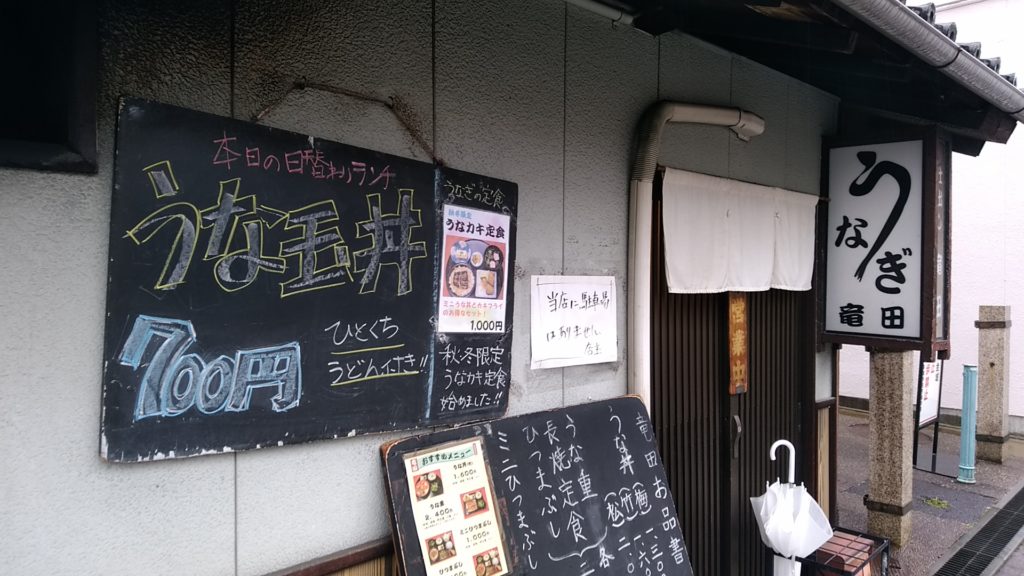 本日の日替わりランチ
うな玉丼
700円
ひとくち
うどん付き!!
うなぎの定食へ
秋冬限定
うなカキ定食
ミニうな丼とカキフライ
のお得なセット!
1,000円
秋・冬限定
うなカキ定食
始めました!!
当店に駐車場
は有りません
店主
営業中
うなぎ
竜田
竜田お品書
うな丼
梅
竹
松
うな重
長焼定食
ひつまぶし
各
ミニひつまぶし
おすすめメニュー
うな丼(竹)
1,600円
うな重
2,400円
ミニひつまぶし
1,000円
ひつまぶし